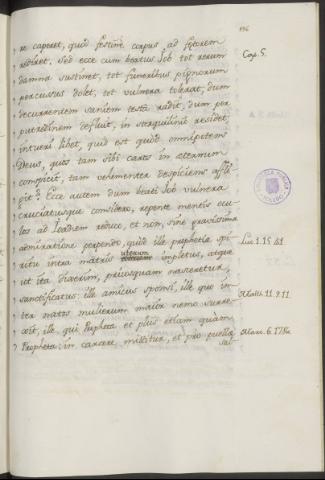 196
re caperet, quid festine corpus ad fetorem
rediret. Sed ecce cum beatus Iob tot rerum
damna sustinet, tot funeribus pignorum
percussus dolet, tot vulnera tolerat, dum
decurrentem saniem testa radit, dum per
putredinem defluit, in sterquilinio residet,
intueri libet, quid est quod omnipotens
Deus, quos tam sibi caros in æternum
conspicit, tam vehementer despiciens affli-
git? Ecce autem dum beati Iob vulnera
cruciatusque considero, repente mentis ocu-
los ad Ioannem reduco, et non sine gravissima
admiratione perpendo, quod ille prophetiæ spi-
ritu intra matris uterum impletus, atque
ut ita dixerim, priusquam nasceretur,
sanctificatus: ille amicus sponsi, ille quo in-
ter natos mulierum maior nemo surre-
xit, ille qui Propheta et plus etiam quam
Propheta: in carcere mittitur, et pro puellæ
sal-
Cap. 5.
Luc. 1. 15. 41
Matth. 11. 9. 11.
Marc. 6. 17